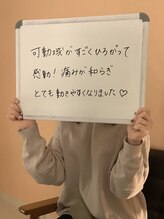 可動域がすごくひろがって
感動！痛みが和らぎ
とても動きやすくなりました♡